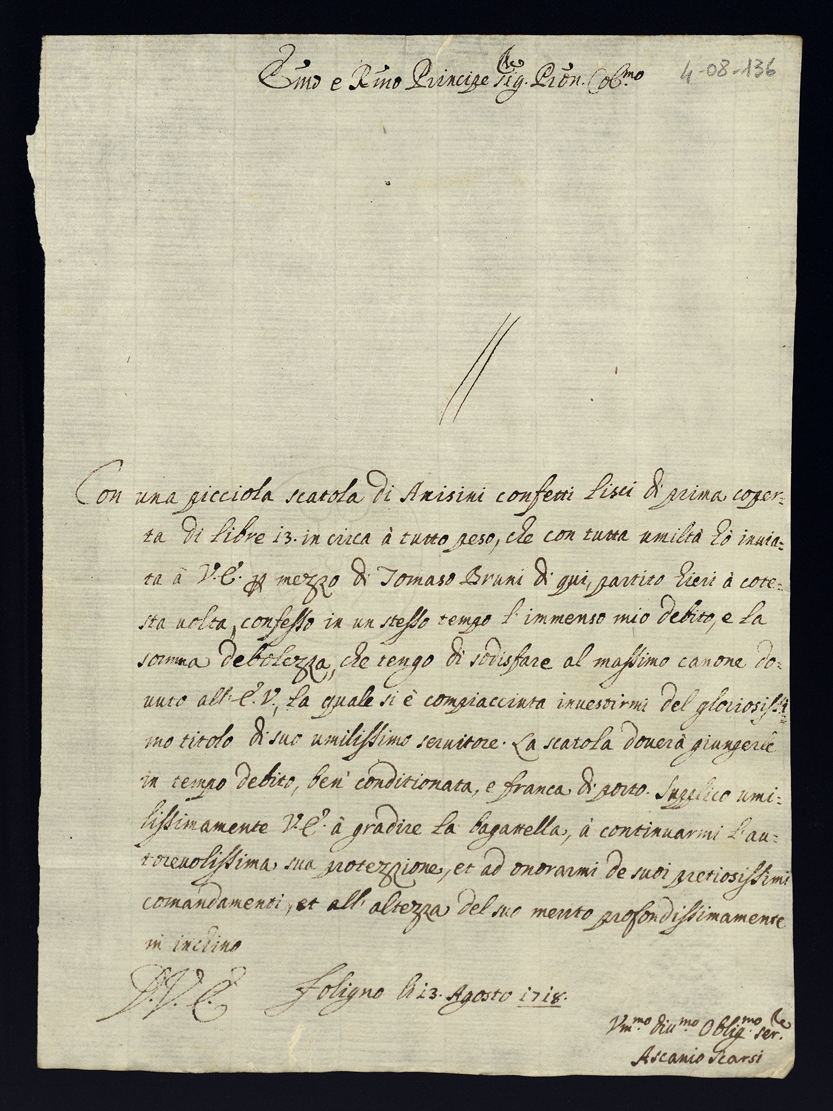 Emo e Rmo Principe Sig.re Pron. Colmo
4-08-136
Con una picciola scatola di Anisini confetti lisci di prima coper-
ta di libre 13. in circa à tutto peso, che con tutta umiltà hò invia-
ta à V.E. p mezzo di Tomaso Bruni di qui, partito hieri à cote-
sta volta, confesso in un stesso tempo l'immenso mio debito, e la
somma debolezza, che tengo di sodisfare al massimo canone do-
vuto all'E.V., la quale si è compiacciuta investirmi del gloriosissi-
mo titolo di suo umilissimo servitore. La scatola doverà giungerle
in tempo debito, ben conditionata, e franca di porto. Supplico umi-
lissimamente V.E. à gradire la bagattella, à continuarmi l'au-
torevolissima sua protezzione, et ad onorarmi de suoi pretiosissimi
comandamenti, et all'altezza del suo merito profondissimamente
m'inchino
D.V.E. Foligno li 13. Agosto 1718.
Vm.mo Div.mo Oblig.mo ser.re
Ascanio Scarsi